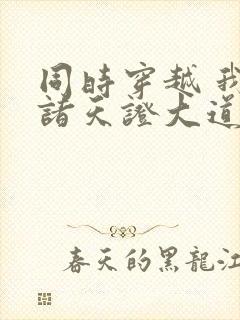 同時穿越 我
諸天證大道
春天的黑龍江